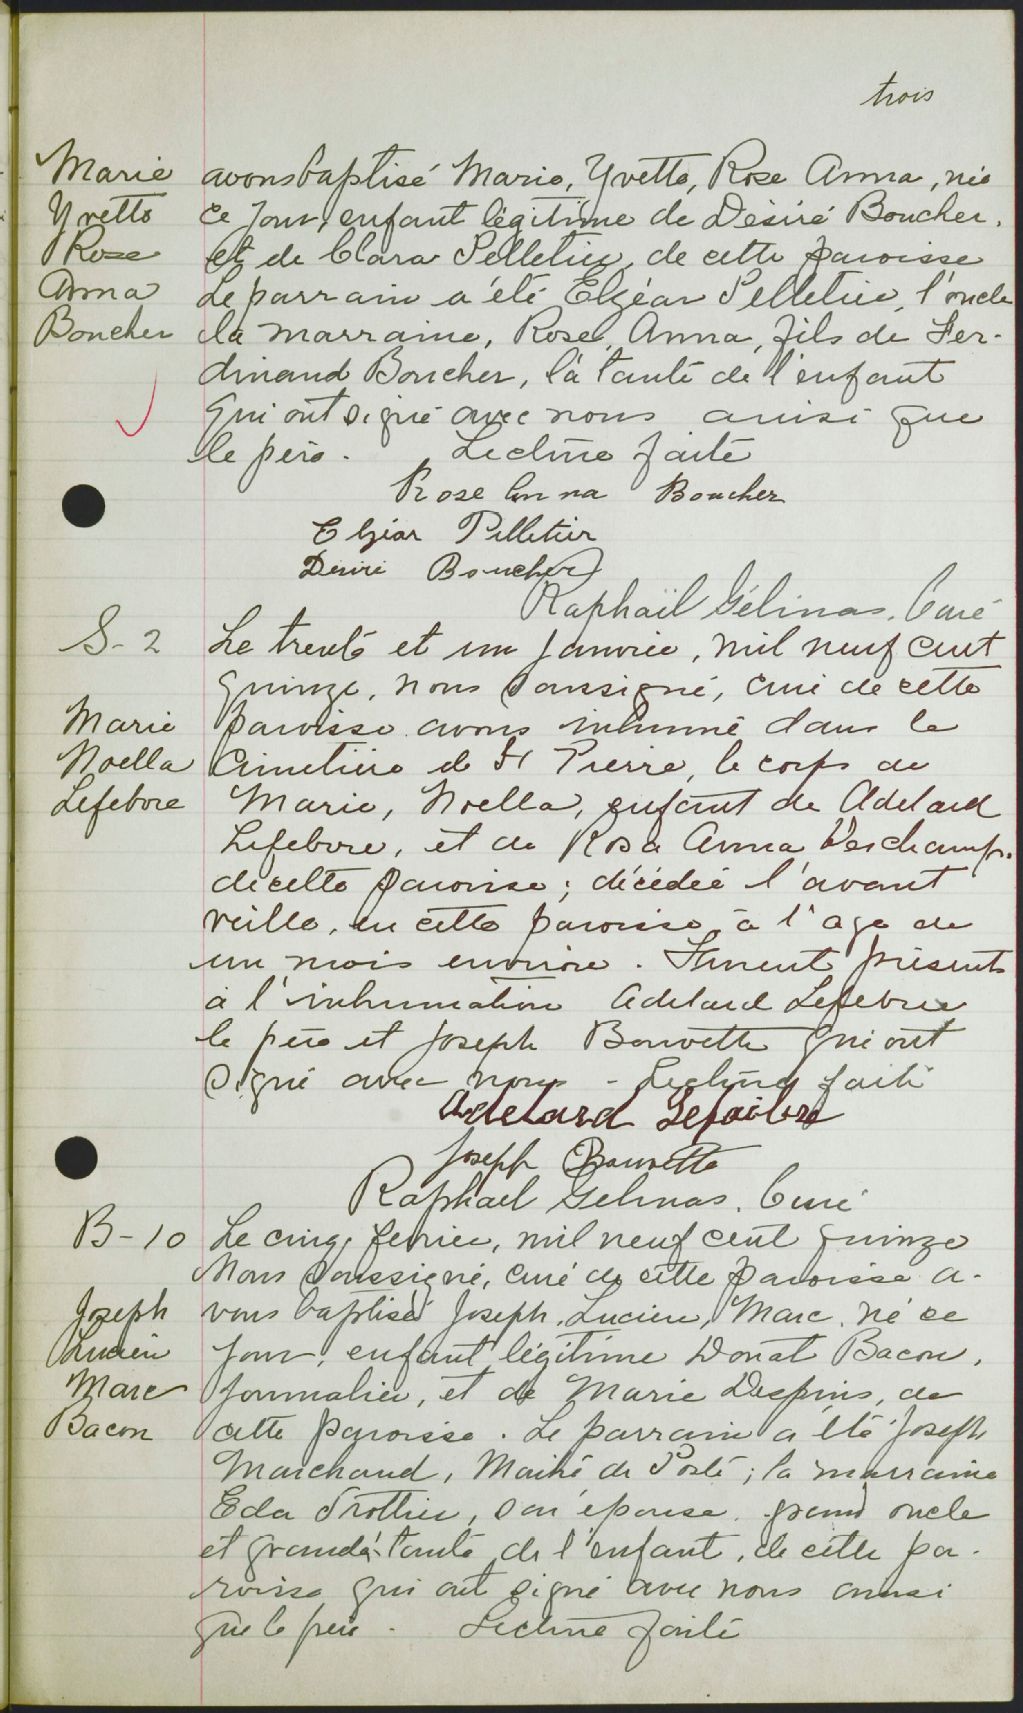 trois
Marie
Yvette
Rose
Anna
Boucher
avons baptisé Marie, Yvette, Rose Anna, née
ce jour, enfant légitime de Désiré Boucher,
et de Clara Pelletier, de cette paroisse
Le parrain a été Elzéar Pelletier, l'oncle
la marraine, Rose, Anna, fils de Fer-
dinand Boucher, la tante de l'enfant
qui ont signé avec nous ainsi que
le père. Lecture faite
Rose Anna Boucher
Elzéar Pelletier
Désiré Boucher
Raphaël Gélinas, Curé
S-2
Marie
Noella
Lefebvre
Le trente et un Janvier, mil neuf cent
quinze, nous soussigné, curé de cette
paroisse avons inhumé dans le
Cimetière de St Pierre, le corps de
Marie, Noella, enfant de Adelard
Lefebvre, et de Rosa Anna Deschamps.
de cette paroisse; décédée l'avant
veille, en cette paroisse à l'age de
un mois environ. Furent présents
à l'inhumation Adelard Lefebvre
le père et Joseph Bouvette qui ont
signé avec nous - Lecture faite
Adelard Lefaibre
Joseph Bouvette
Raphael Gelinas, Curé
B-10
Joseph
Lucien
Marc
Bacon
Le cinq fevrier, mil neuf cent quinze
Nous soussigné, curé de cette paroisse a-
vons baptisé Joseph, Lucien, Marc, né ce
jour, enfant légitime Donat Bacon,
journalier, et de Marie Despins, de
cette paroisse. Le parrain a été Joseph
Marchand, Maitre de Poste; la marraine
Eda Trottier, son épouse, grand oncle
et grande tante de l'enfant, de cette pa-
roisse qui ont signé avec nous ainsi
que le père - Lecture faite